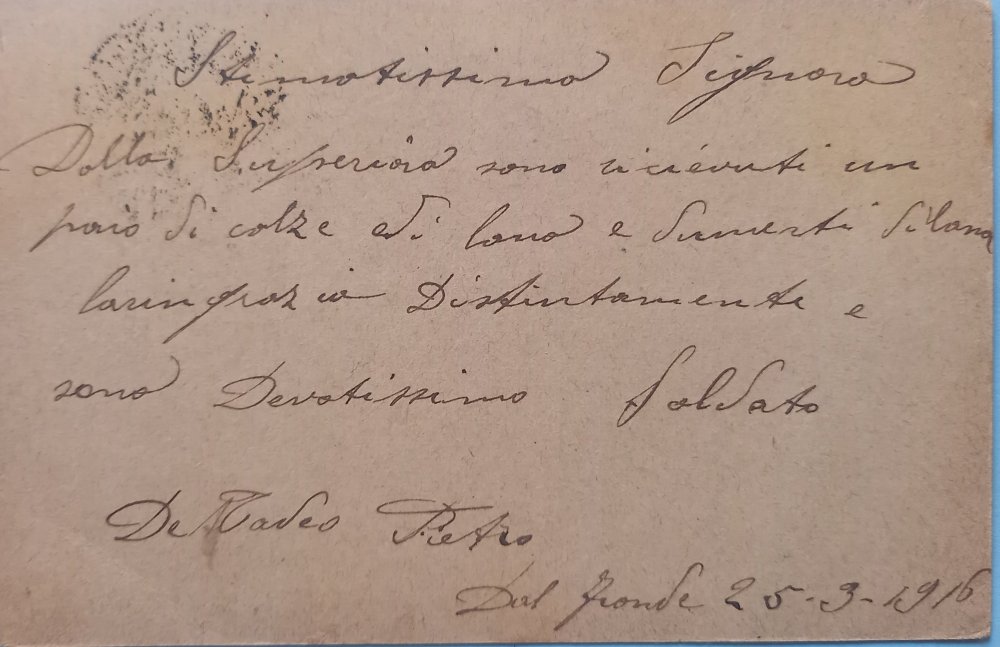 Stimatissima Signora
Dalla Superiora sono riciévuti un
paio di calze edi lana e di lana
laringrazia Distintamente e
sono Devotissimo Soldato
De Tadeo Pietro
Dal fronde 25-3-1916